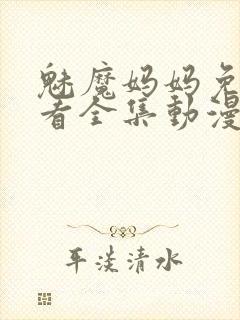 魅魔妈妈免
看全集動漫
平淡清水